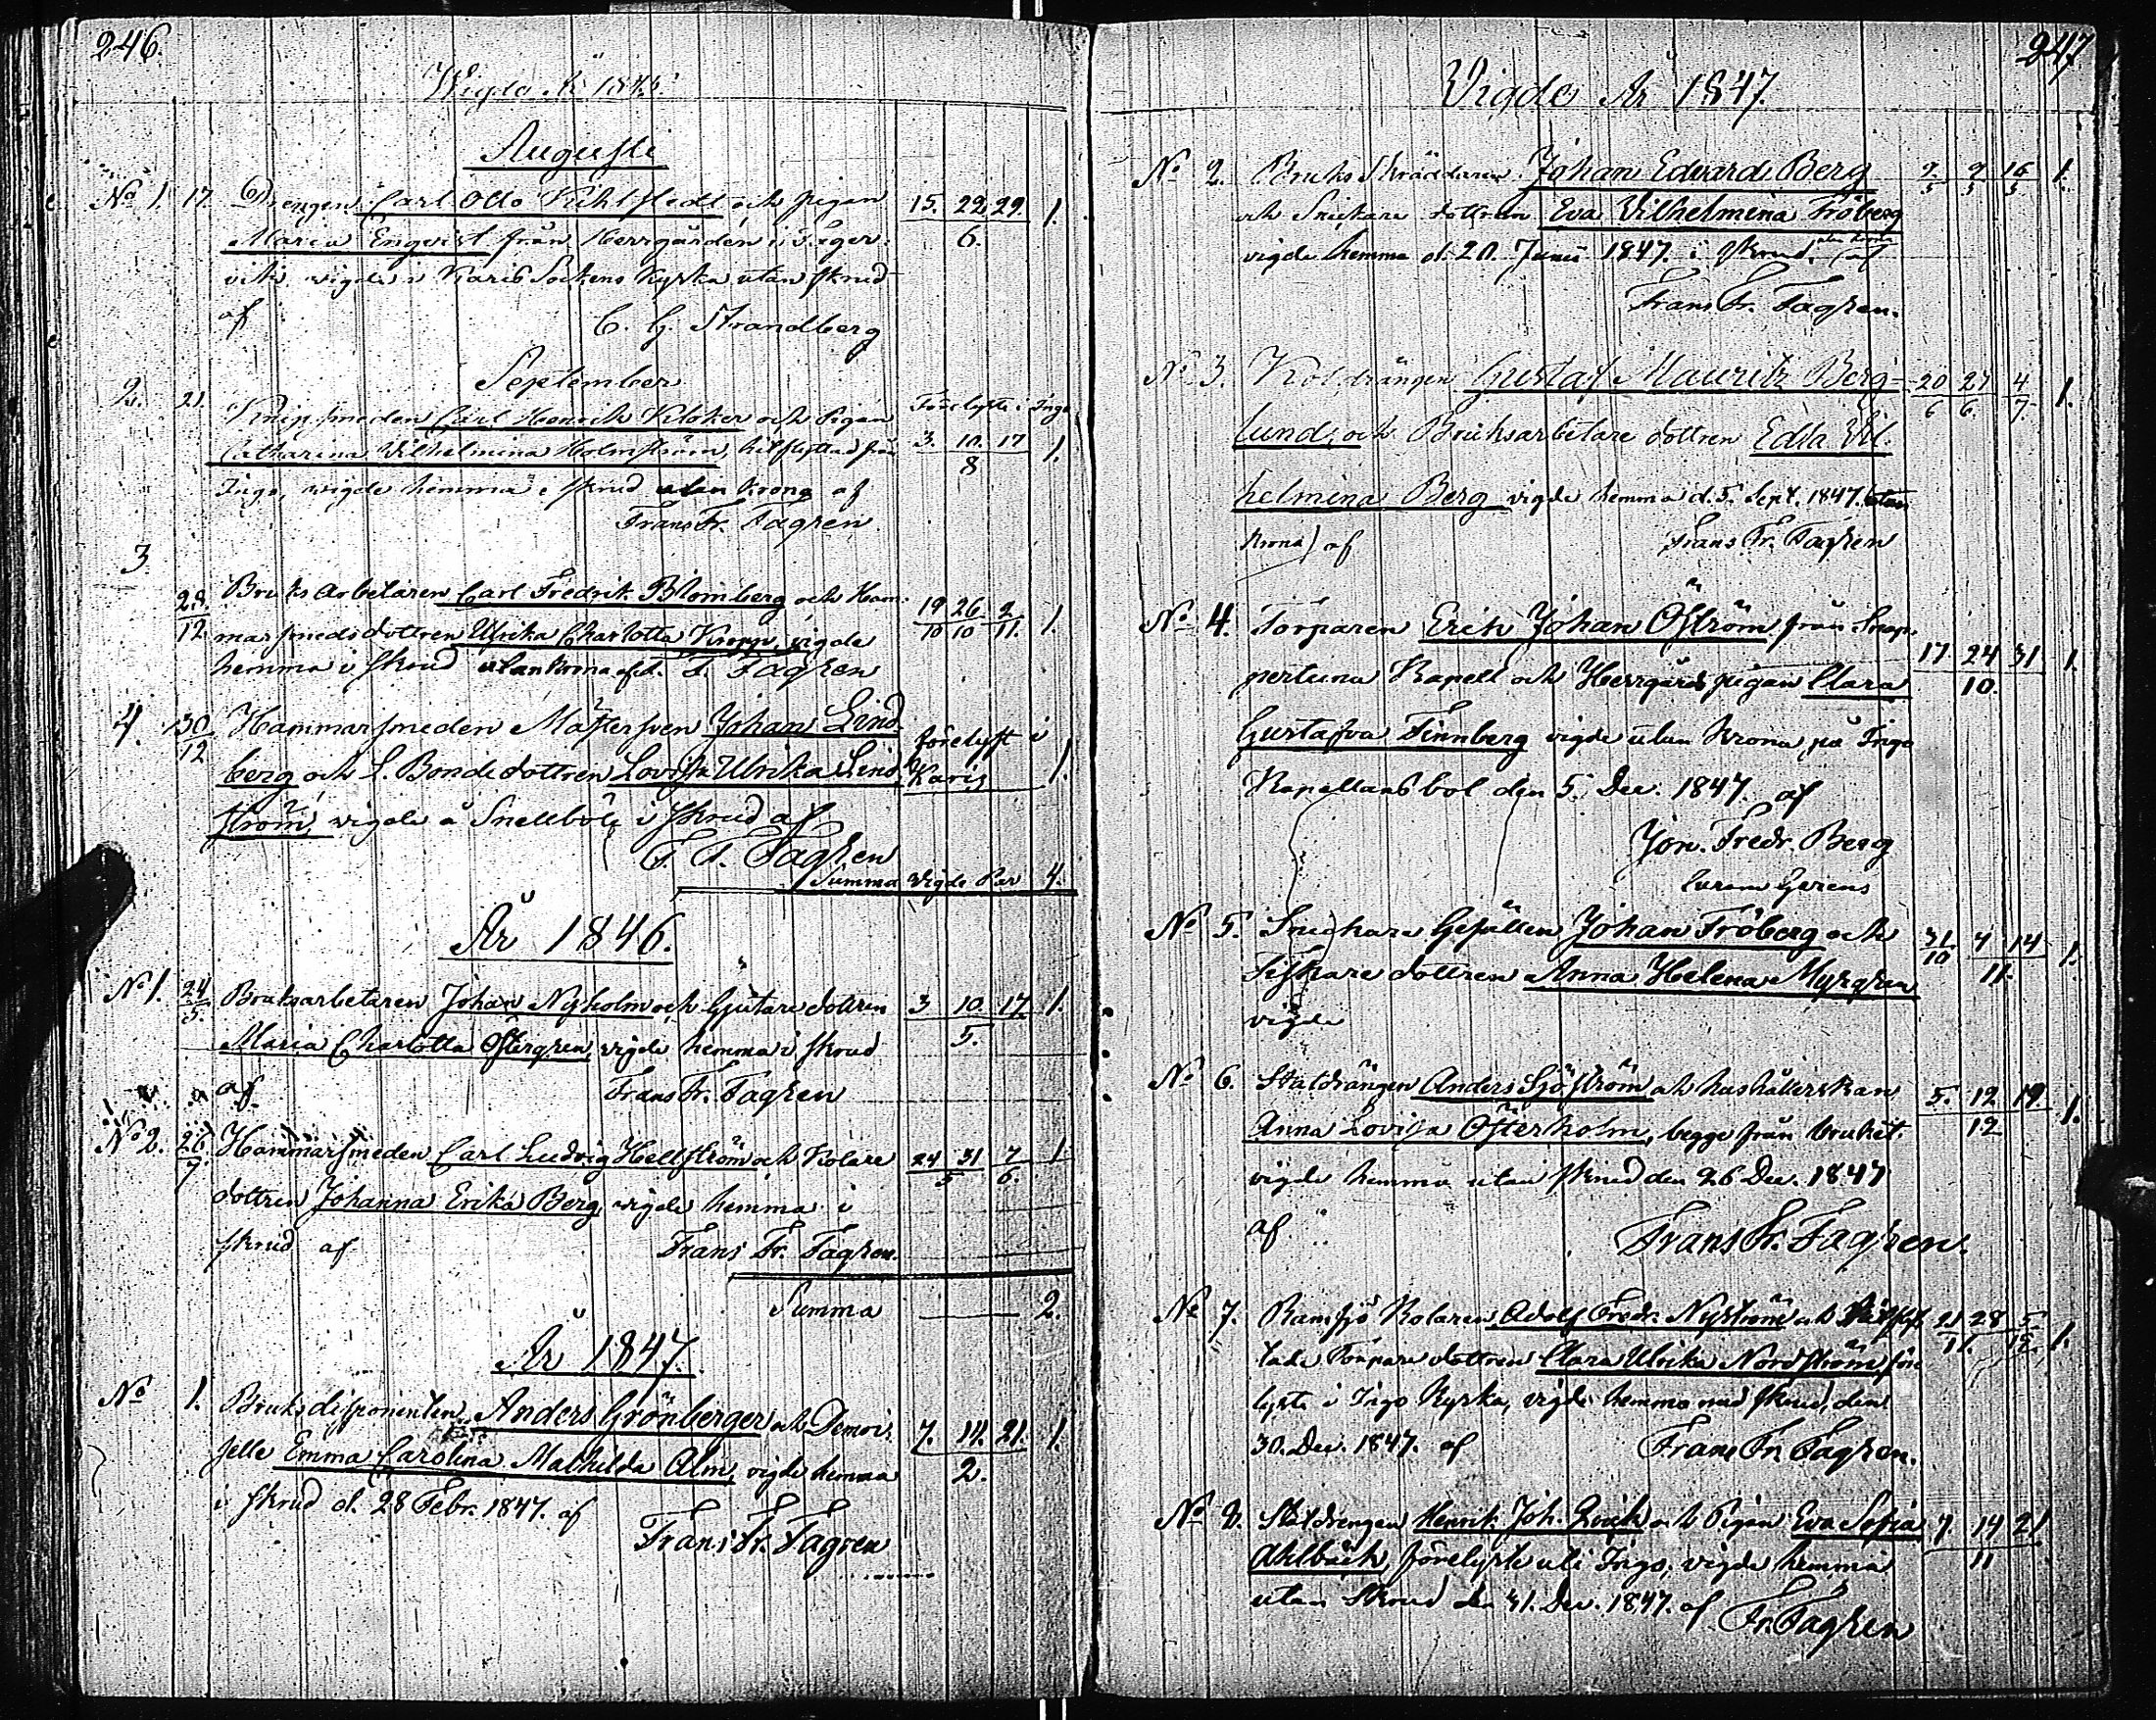 246.
Wigde År 1845.
Augusti
No 1. 17. Drengen Carl Otto Kihlstedt och pigan 15. 22. 29. 1.
Maria Enqvist från Herrgården i Fager- 6.
vik wigde i Karis Sockens Kyrka utan skrud
af C. G. Strandberg
September
2. 21. Knipsmeden Carl Henrik Klöker och Pigan Förelyste i Ingo
Catharina Wilhelmina Holmström, hitflyttad från 3. 10. 17 1.
8
Ingo, wigde hemma i skrud utan krona af
Frans Fr. Fagren
3
28. Bruks Arbetaren Carl Fredrik Blomberg och Ham- 19 26 2 1.
12. marsmedsdottren Ulrika Charlotta Kropp, vigde 10 10 11.
hemma i skrud utan krona af F. F. Fagren
4. 30 Hammarsmeden Mästersven Johan Lind- förelyst i
12 berg och L. Bondedottren Lovisa Ulrika Lind- Karis 1.
ström, wigde å Snellböle i skrud af
F. F. Fagren
Summa Wigde Par 4.
År 1846.
No 1. 24 Bruksarbetaren Johan Nyholm och Gjutaredottren 3 10. 17. 1.
5. Maria Charlotta Östergren, vigde hemma i skrud 5.
af Frans Fr. Fagren
No 2. 26 Hammarsmeden Carl Ludvig Hellström och Kolare 24 31 7 1
7. dottren Johanna Erika Berg, wigde hemma i 5 6.
skrud af Frans Fr. Fagren.
Summa 2.
År 1847.
No 1. Bruksdisponenten Anders Grönberger och Demoi- 7. 14. 21. 1.
selle Emma Carolina Mathilda Alm, vigde hemma 2.
i skrud d. 28 Febr. 1847. af
Frans Fr. Fagren
247
Vigde År 1847.
No 2. Bruks Skräddaren Johan Edvard Berg 2 9 16 1.
5 5 5
och Snickare dottren Eva Vilhelmina Fröberg
vigde hemma d. 20. Junii 1847. i skrud, utan krona af
Frans Fr. Fagren.
No 3. Koldrängen Gustaf Mauritz Berg- 20 27 4 1.
6 6. 7.
lund, och Bruksarbetare dottren Edla Vil-
helmina Berg vigde hemma d. 5. Sept. 1847. (utan
krona) af Frans Fr. Fagren
No 4. Torparen Erik Johan Öström från Snap- 17 24 31 1.
pertuna Kapell och Herrgårds pigan Clara 10.
Gustafva Finnberg vigde utan Krona på Ingo
Kapellans bol den 5. Dec. 1847. af
Jon. Fredr. Berg
Curam Gerens
No 5. Snickare Gesällen Johan Fröberg och 31 7 14 1.
10 11.
Fiskare dottren Anna Helena Myrgren
vigde
No 6. Staldrängen Anders Sjöström och hushållerskan 5. 12 19 1.
Anna Lovisa Österholm, begge från bruket. 12
vigde hemma utan skrud den 26 Dec. 1847
af Frans Fr. Fagren.
No 7. Ramsjö Kolaren Adolf Fredr. Nyström och 21 28 5 1.
11. 12.
Torpare dottren Clara Ulrika Nordström före
lyste i Ingo Kyrka, vigde hemma med skrud, den
30. Dec. 1847. af Frans Fr. Fagren.
No 8. Staldrengen Henrik Joh. och Pigan Eva Sofia 7 14 21
Ahlbäck, förelyste uti Ingo, vigde hemma 11
utan skrud den 31. Dec. 1847. af Fr. Fagren